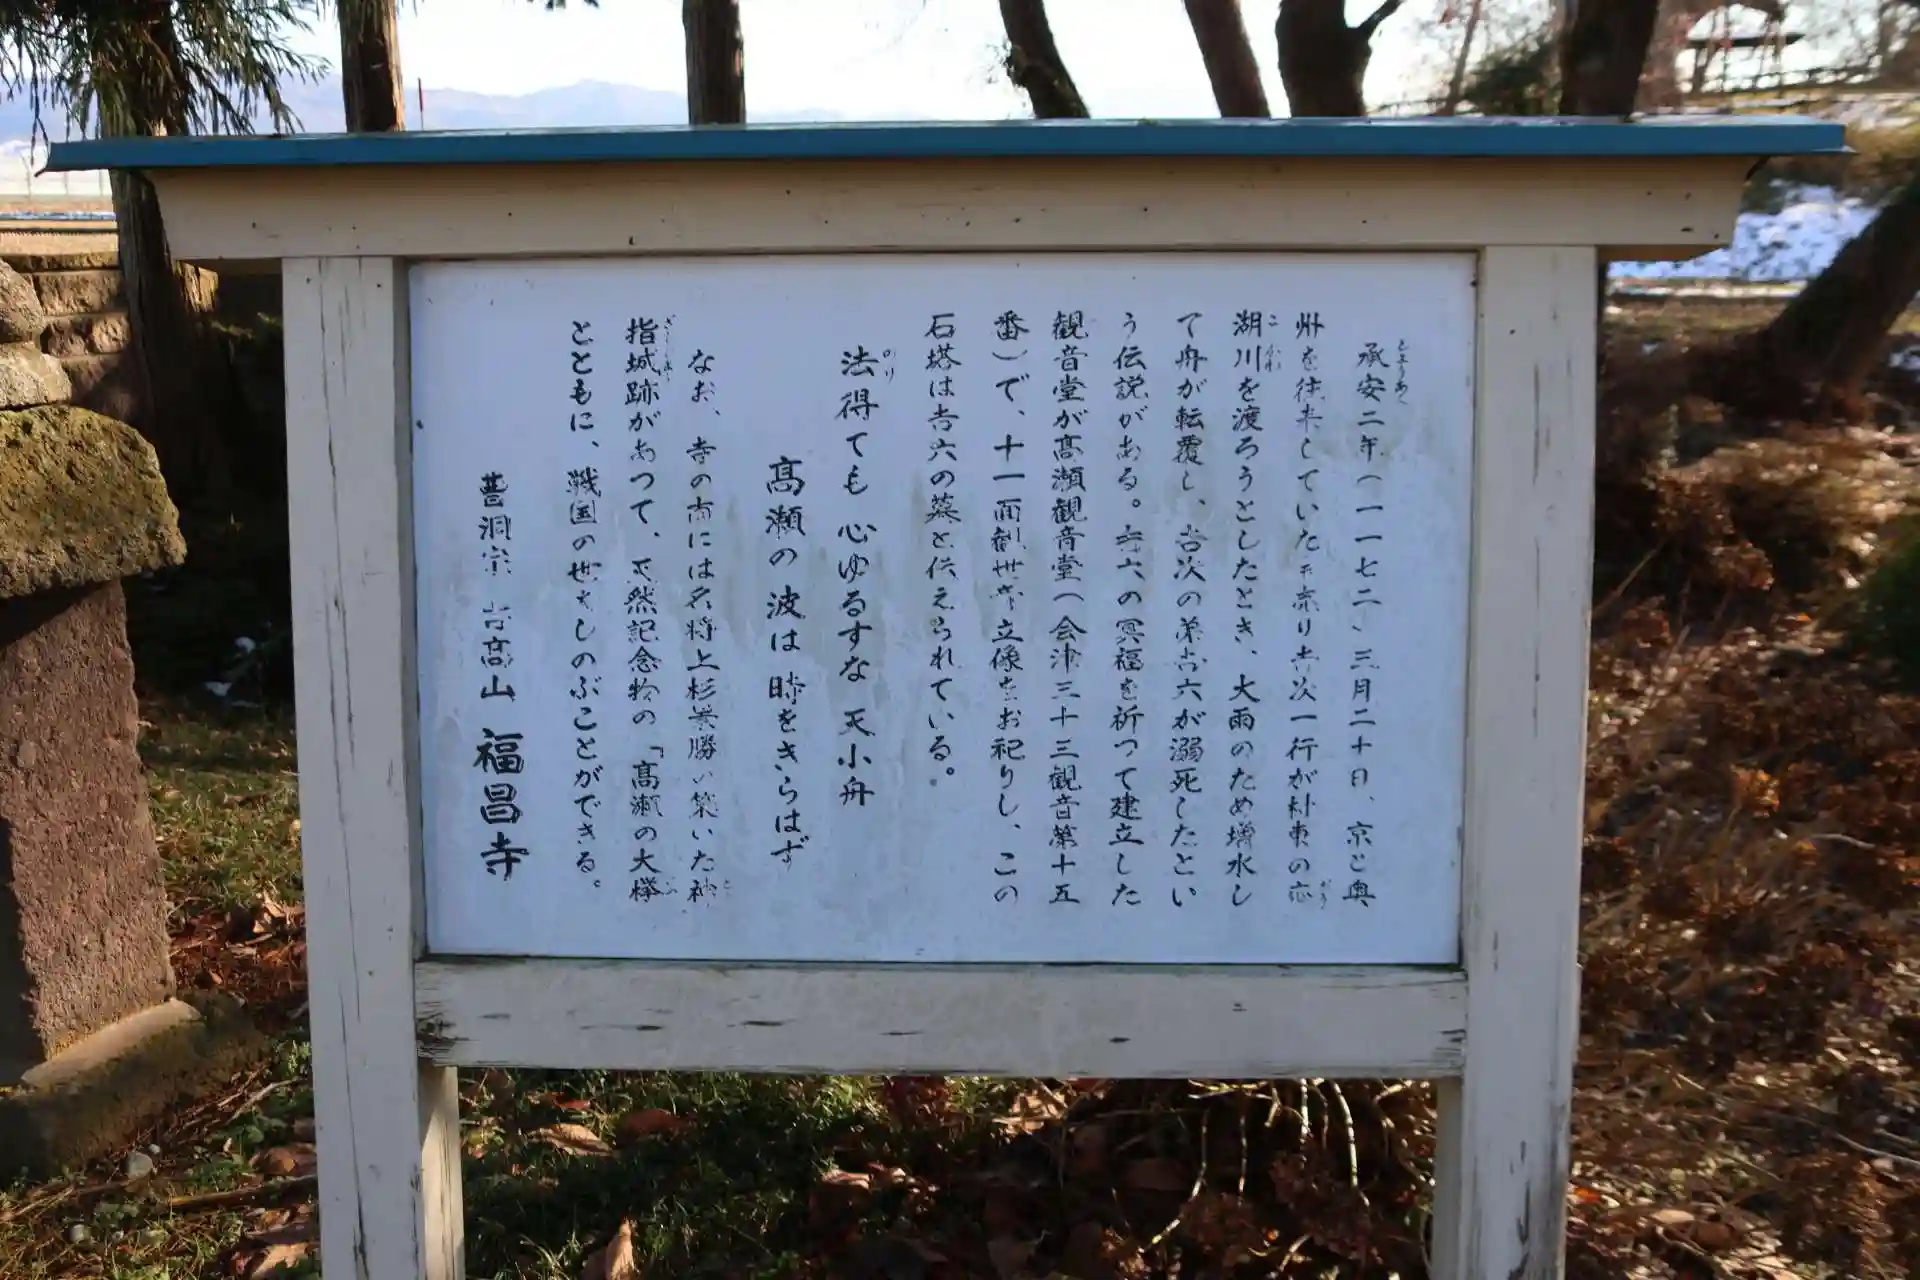 承安二年(一一七二)三月二十日、京と奥
州を往来していた金売り吉次一行が村東の応
湖川を渡ろうとしたとき、大雨のため増水し
て舟が転覆し、吉次の弟吉六が溺死したとい
う伝説がある。吉六の冥福を祈つて建立した
観音堂が高瀬観音堂(会津三十三観音第十五
番)で、十一面観世音立像をお祀りし、この
石塔は吉六の墓と伝えられている。
法得ても 心ゆるすな 天小舟
高瀬の 波は 時をきらはず
なお、寺の南には名将上杉景勝の築いた神
指城跡があつて、天然記念物の「高瀬の大欅」
とともに、戦国の世をしのぶことができる。
曹洞宗 吉高山 福昌寺